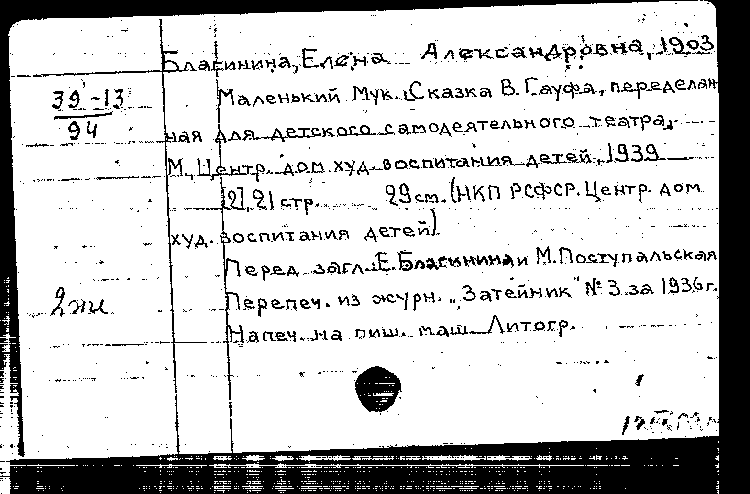 Благинина, Елена Александровна, 1903
39-13
94
Маленький Мук. Сказка В. Гауфа, переделан
ная для детского самодеятельного театра,
М., Центр. дом худ. воспитания детей, 1939
[2], 21 стр. 29 см. (НКП РСФСР. Центр. дом
худ. воспитания детей)
Перед загл.: Е. Благинина и М. Поступальская
Перепеч. из журн. „Затейник" № 3 за 1936 г.
Напеч. на пиш. маш. Литогр.